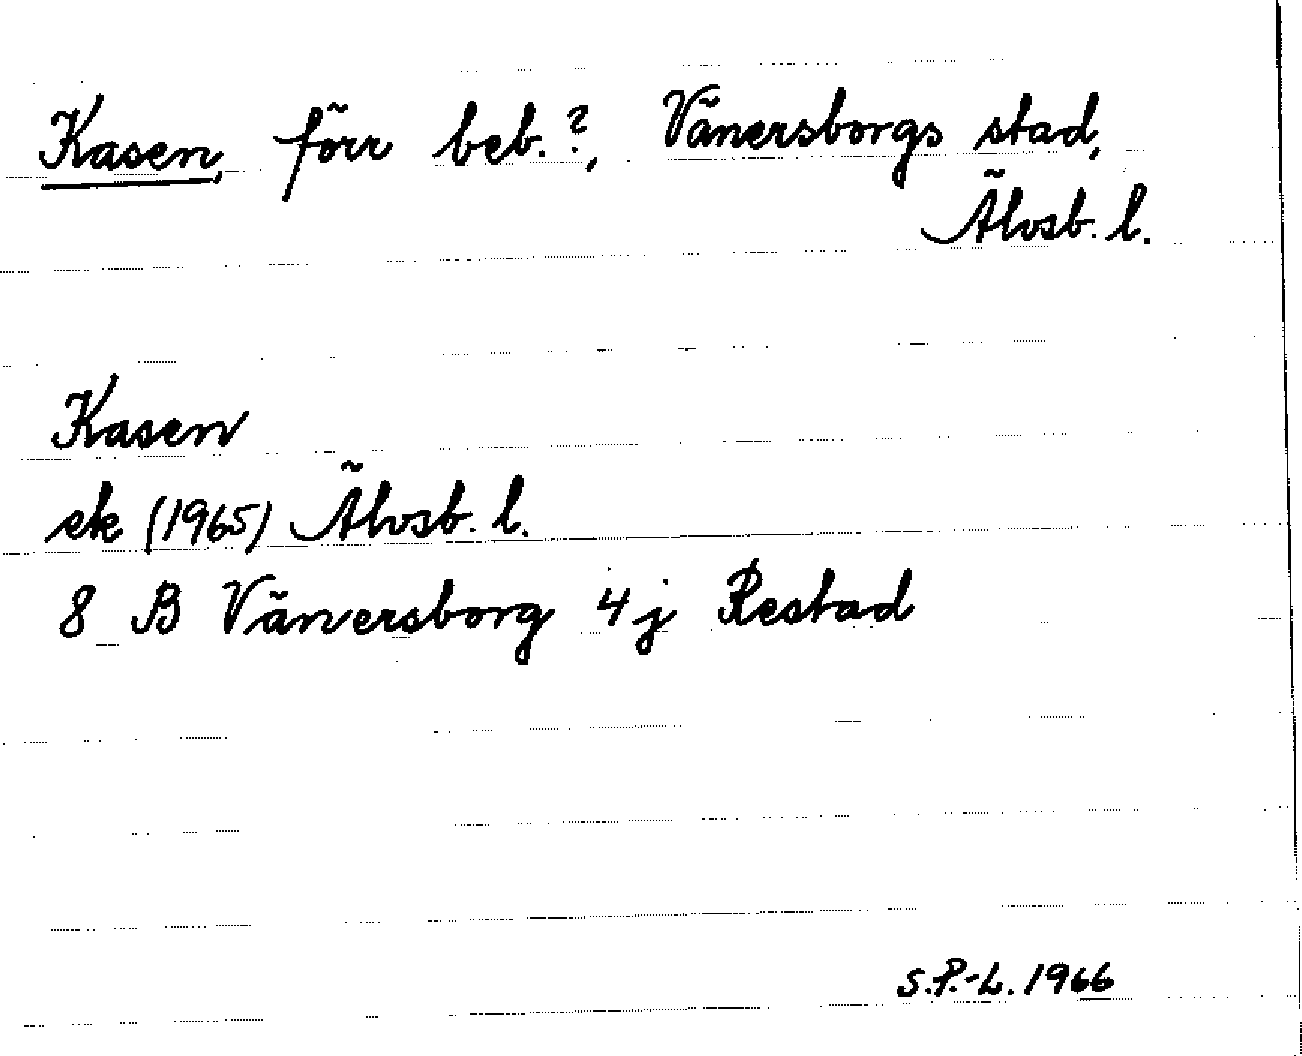 Kasen, förr beb.?, Vänersborgs stad,
Älvsb. l.
Kasen
ek (1965) Älvsb. l.
8 B Vänersborg 4 j Restad
S.P.-L. 1966